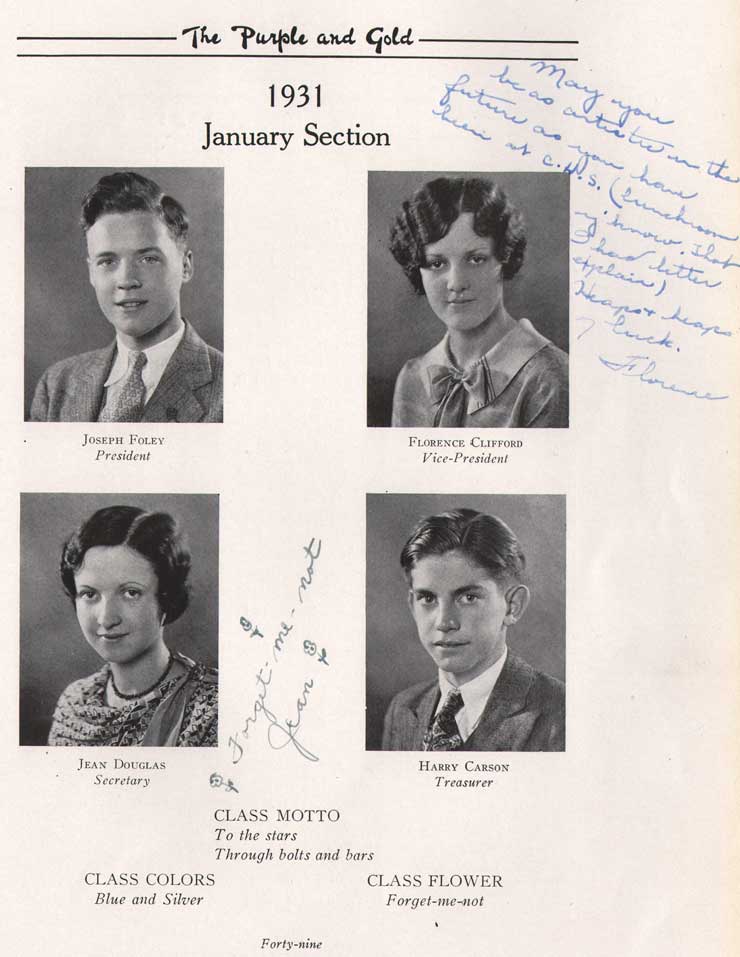 The Purple and Gold
1931
January Section
May you
be as artistic in the
future as you have
been at C.H.S. (lunchroom
I had better
explain)
Heaps & heaps
luck.
Florence
Joseph Foley
President
Florence Clifford
Vice-President
Forget-me-not
Jean
Jean Douglas
Secretary
Harry Carson
Treasurer
CLASS MOTTO
To the stars
Through bolts and bars
CLASS COLORS
Blue and Silver
CLASS FLOWER
Forget-me-not
Forty-nine